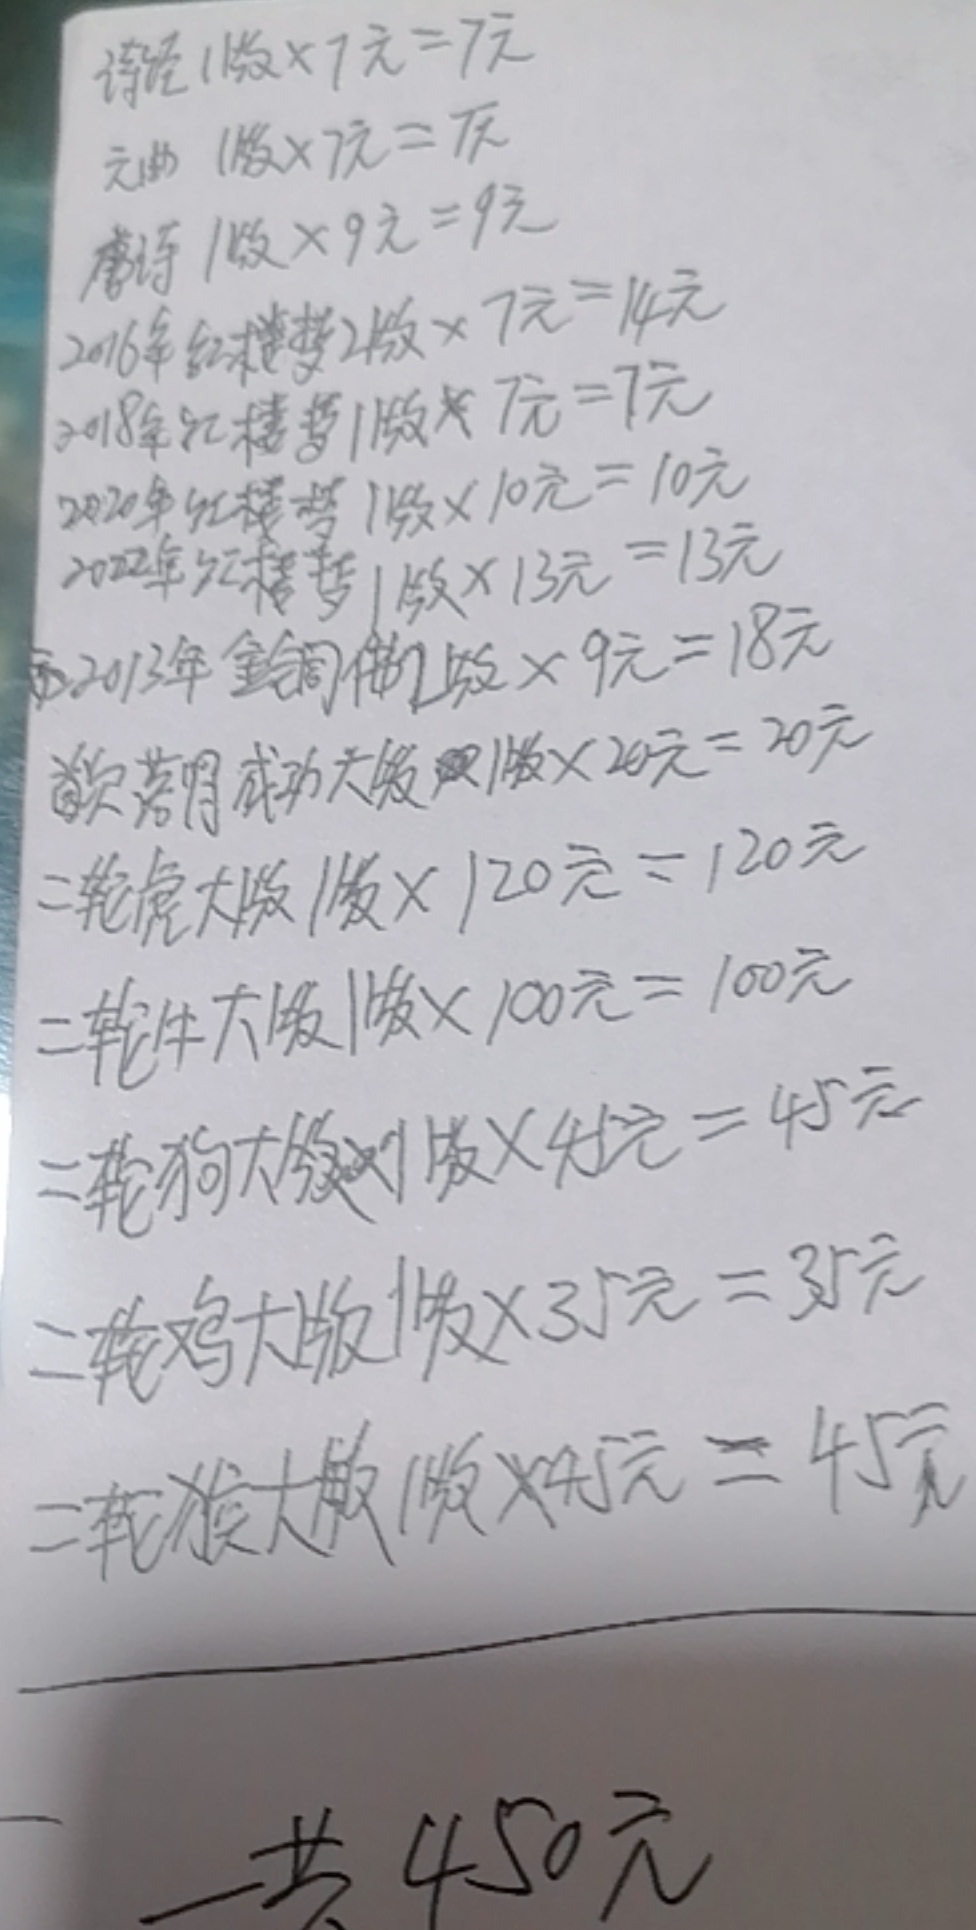 诗经1版×7元=7元
元曲 1版×7元=7元
唐诗 1版×9元=9元
2016年红楼梦2版×7元=14元
2018年红楼梦1版×7元=7元
2020年红楼梦1版×10元=10元
2022年红楼梦1版×13元=13元
2013年金铜佛2版×9元=18元
首次落月成功大版1版×20元=20元
二轮虎大版1版×120元=120元
二轮牛大版1版×100元=100元
二轮狗大版1版×45元=45元
二轮鸡大版1版×35元=35元
二轮猴大版1版×45元=45元
一共450元